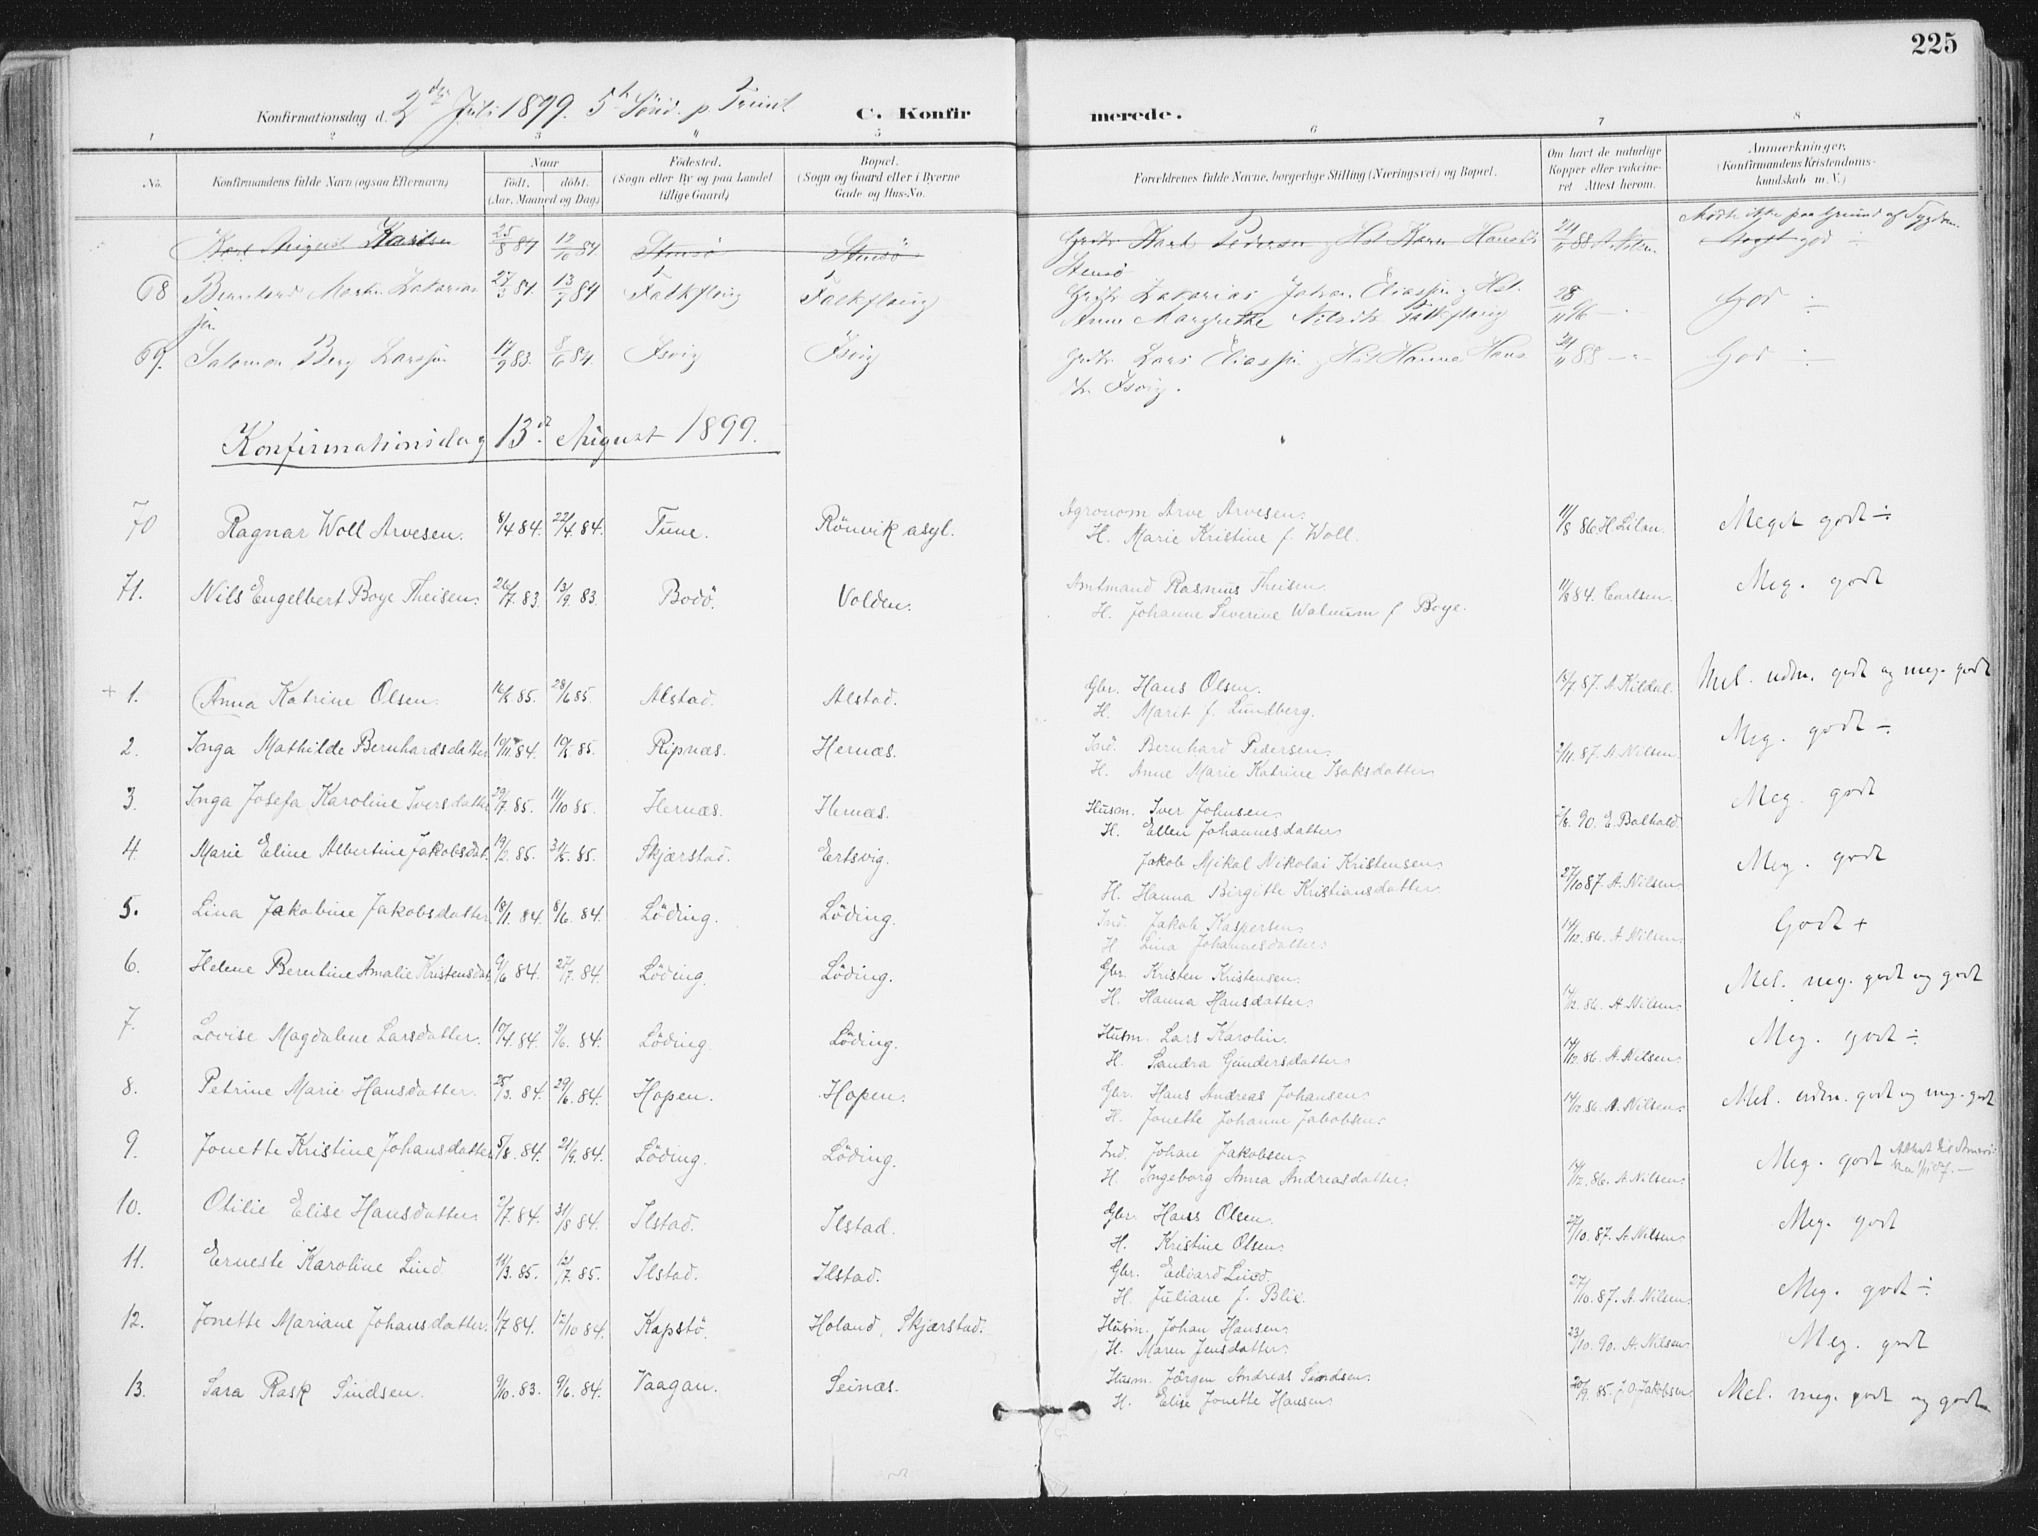 225
Konfirmationsdag d. 2den Juli 1899. 5te Sönd. p. Trinit C. Konfirmerede.
1 2 3 4 5 6 7 8
No. Konfirmandens fulde Navn (ogsaa Efternavn) Naar født. døbt. (Aar, Maaned og Dag) Födested. (Sogn eller By og paa Landet tillige Gaard) Bopæl. (Sogn og Gaard eller i Byerne Gade og Hus-No. Forældrenes fulde Navne, borgerlige Stilling (Næringsvei) og Bopæl. Om havt de naturlige Kopper eller vaccineret Attest herom. Anmærkninger. (Konfirmandens Kristendomskundskab m. V.)
Karl August Karlsen 25/8 84 12/10 84 Stensö Stensö Grbr. Karl Pedersen Hst Karen Hansdtr Stensö 24/11 88 A. Nilsen Mødte ikke paa Grund af Sygdom. Meget god ÷
68 Bernhard Martin Zakariasjen 27/3 84. 13/7 84 Falkflaug Falkflaug Grbr Zakarias Johan Eliassen Hst. Anne Margrethe Nilsdtr Falkflaug 28/11 God ÷
69. Salomon Berg Larssen 14/9 83. 8/6 84. Isvig Isvig Grbr. Lars Eliassen Hst Hanna Hansdtr. Isvig. 24/11 88 God ÷
Konfirmationsdag 13de August 1899.
70 Ragnar Woll Arvesen. 8/4 84. 22/4 84. Tune. Rönvik asyl. Agronom Arve Arvesen. H. Marie Kristine f. Woll. 11/8 86. H Lilon. Meget godt ÷
71. Nils Engelbert Boye Theisen. 26/7. 83. 13/9. 83. Bodö. Volden. Amtmand Rasmus Theisen H. Johanne Severine Walnum f Boye. 11/8 84. Carlsen. Meg. godt
+ 1. Anna Katrine Olsen. 16/5. 85. 28/6 85. Alstad. Alstad. Gbr. Hans Olsen. H. Marit f. Lundberg. 18/7 87. A. Kildal. Mel. udm. godt og meg. godt
2. Inga Mathilde Bernhardsdatter 19/11 84. 10/5. 85. Ripnæs. Hernæs. Ind. Bernhard Pedersen. H. Anne Marie Katrine Isaksdatter 2/11. 87. A. Nilsen. Meg. godt ÷
3. Inga Josefa Karoline Iversdatter 29/7. 85. 11/10 85. Hernæs. Hernæs. Husm. Iver Johnsen. H. Ellen Johannesdatter 90. E. Bolhold. Meg. godt
4. Marie Eline Albertine Jakobsdat. 19/2. 85. 31/5. 85. Skjærstad. Ertsvig. Jakob Mikal Nikolai Kristensen. H. Hanna Birgitte Kristiansdatter. 27/10 87. A. Nilsen Meg. godt
5. Lina Jakobine Jakobsdatter 18/1. 84. 8/6. 84. Löding. Löding. Ind. Jakob Kaspersen. H. Lina Johannesdatter. 14/12. 86. A. Nilsen. Godt +
6. Helene Berntine Amalie Kristensdat. 9/6 84. 27/7. 84. Löding. Löding. Gbr. Kristen Kristensen. H. Hanna Hansdatter 14/12. 86. A. Nilsen. Mel. meg. godt og godt
7. Lovise Magdalene Larsdatter. 10/4. 84. 2/6. 84. Löding. Löding. Husm. Lars Karolin. H. Sandra Gundersdatter. 14/12. 86. A. Nilsen. Meg. godt ÷
8. Petrine Marie Hansdatter. 25/3. 84. 29/6. 84. Hopen. Hopen. Gbr. Hans Andreas Johansen. H. Jonette Johanne Jakobsen. 14/12. 86. A. Nilsen. Mel. udm. godt og meg. godt
9. Jonette Kristine Johansdatter 5/8. 84. 21/9. 84. Löding. Löding. Ind. Johan Jakobsen. H. Ingeborg Anna Andreasdatter. 14/12. 86. A. Nilsen. Meg. godt Attest til Amerika
10. Otilie Elise Hansdatter. 2/7. 84. 31/8 84. Ilstad. Ilstad. Gbr. Hans Olsen. H. Kristine Olsen. 27/10. 87. A. Nilsen Meg. godt
11. Erneste Karoline Lind. 11/3. 85. 12/7. 85. Ilstad. Ilstad. Gbr. Edvard Lind. H. Juliane f. Blix. 27/10. 87. A. Nilsen. Meg. godt ÷
12. Jonette Mariane Johansdatter. 11/7 84. 12/10 84. Kapstö. Holand, Skjærstad. Husm. Johan Hansen. H. Maren Jensdatter. 23/10. 90. A. Nilsen Meg. godt
13. Sara Rask Sindsen. 9/10. 83. 9/6. 84. Vaagan. Seines. Husm. Jörgen Andreas Sindsen. H. Elise Jonette Hansen 20/9. 85. J. O. Jakobsen Mel. meg. godt og godt